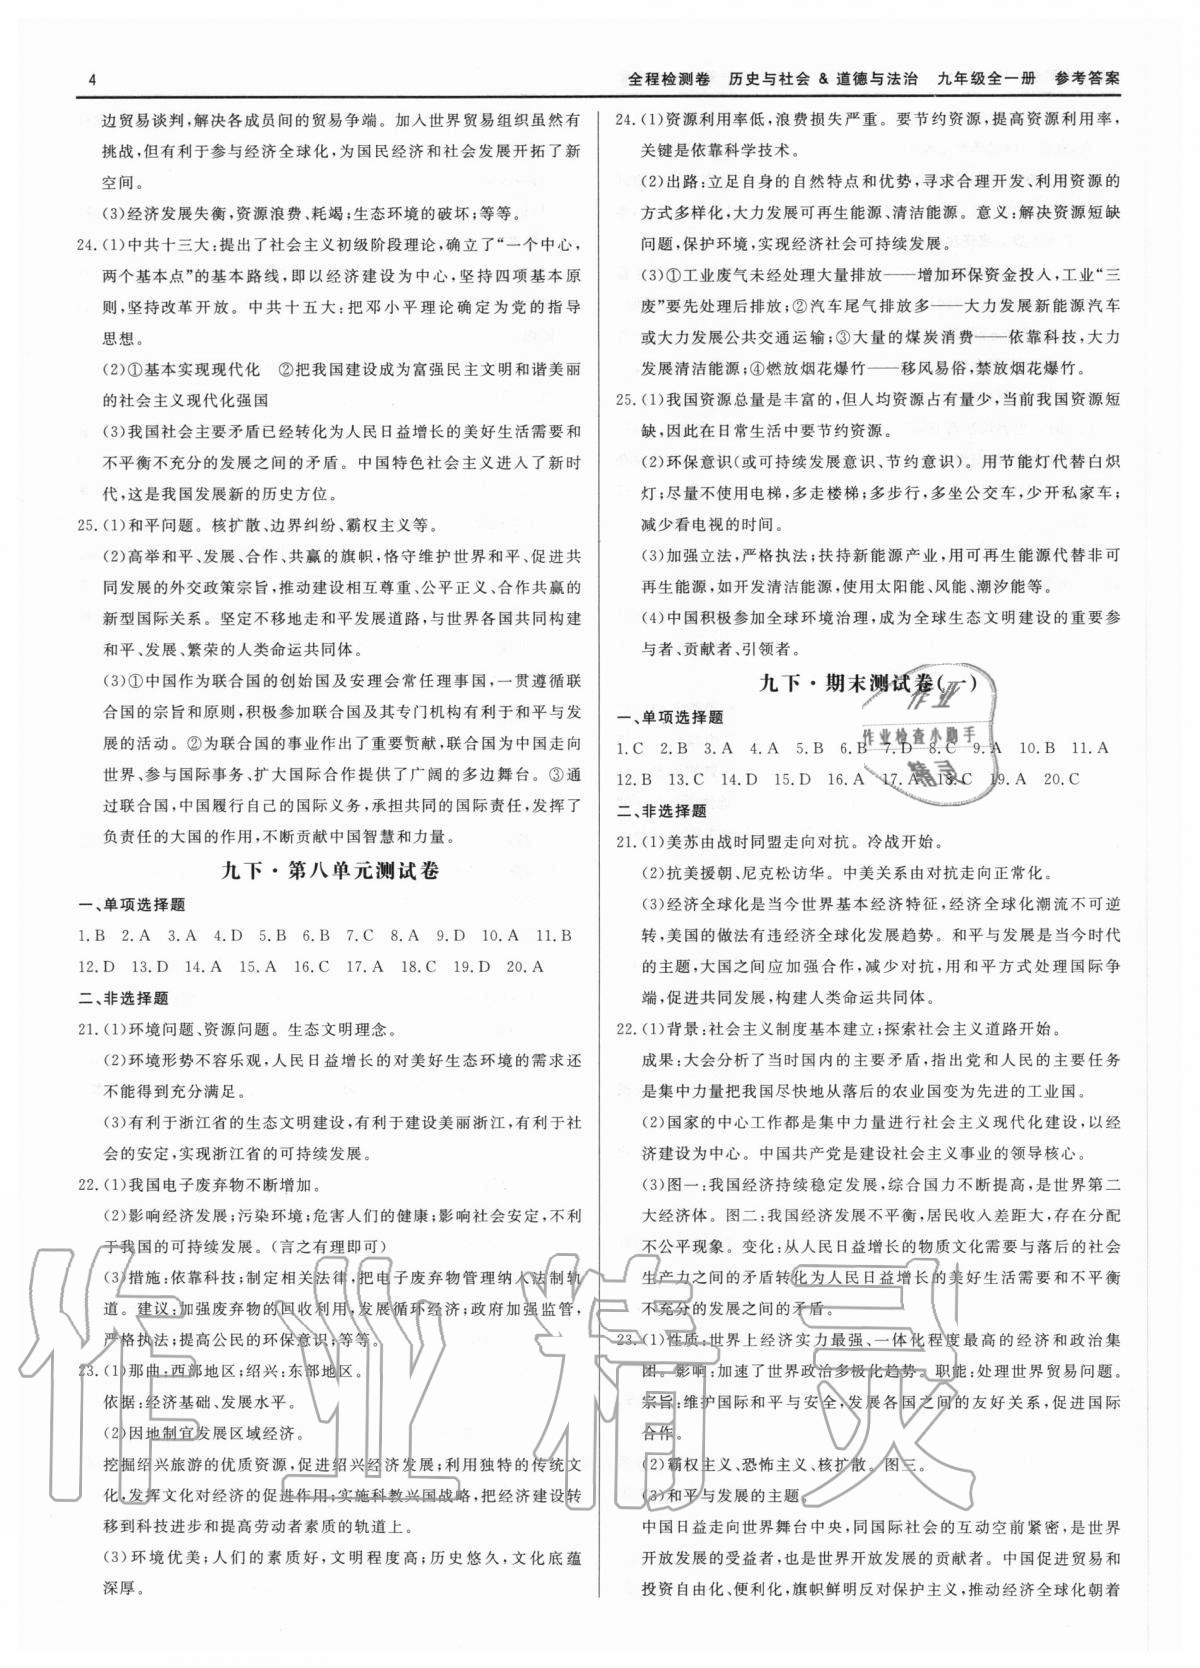 4
全程检测卷 历史与社会 & 道德与法治 九年级全一册 参考答案
边贸易谈判,解决各成员间的贸易争端。加入世界贸易组织虽然有
挑战,但有利于参与经济全球化,为国民经济和社会发展开拓了新
空间。
(3)经济发展失衡,资源浪费、耗竭;生态环境的破坏;等等。
24.(1)中共十三大:提出了社会主义初级阶段理论,确立了“一个中心,
两个基本点”的基本路线,即以经济建设为中心,坚持四项基本原
则,坚持改革开放。中共十五大:把邓小平理论确定为党的指导
思想。
(2)①基本实现现代化 ②把我国建设成为富强民主文明和谐美丽
的社会主义现代化强国
(3)我国社会主要矛盾已经转化为人民日益增长的美好生活需要和
不平衡不充分的发展之间的矛盾。中国特色社会主义进入了新时
代,这是我国发展新的历史方位。
25.(1)和平问题。核扩散、边界纠纷、霸权主义等。
(2)高举和平、发展、合作、共赢的旗帜,恪守维护世界和平、促进共
同发展的外交政策宗旨,推动建设相互尊重、公平正义、合作共赢的
新型国际关系。坚定不移地走和平发展道路,与世界各国共同构建
和平、发展、繁荣的人类命运共同体。
(3)①中国作为联合国的创始国及安理会常任理事国,一贯遵循联
合国的宗旨和原则,积极参加联合国及其专门机构有利于和平与发
展的活动。②为联合国的事业作出了重要贡献,联合国为中国走向
世界、参与国际事务、扩大国际合作提供了广阔的多边舞台。③通
过联合国,中国履行自己的国际义务,承担共同的国际责任,发挥了
负责任的大国的作用,不断贡献中国智慧和力量。
九下·第八单元测试卷
一、单项选择题
1.B 2.A 3.A 4.D 5.B 6.B 7.C 8.A 9.D 10.A 11.B
12.D 13.D 14.A 15.A 16.C 17.A 18.C 19.D 20.A
二、非选择题
21.(1)环境问题、资源问题。生态文明理念。
(2)环境形势不容乐观,人民日益增长的对美好生态环境的需求还
不能得到充分满足。
(3)有利于浙江省的生态文明建设,有利于建设美丽浙江,有利于社
会的安定,实现浙江省的可持续发展。
22.(1)我国电子废弃物不断增加。
(2)影响经济发展;污染环境;危害人们的健康;影响社会安定,不利
于我国的可持续发展。(言之有理即可)
(3)措施:依靠科技;制定相关法律,把电子废弃物管理纳入法制轨
道。建议:加强废弃物的回收利用,发展循环经济;政府加强监管,
严格执法;提高公民的环保意识;等等。
23.(1)那曲:西部地区;绍兴:东部地区。
依据:经济基础、发展水平。
(2)因地制宜发展区域经济。
挖掘绍兴旅游的优质资源,促进绍兴经济发展;利用独特的传统文
化,发挥文化对经济的促进作用;实施科教兴国战略,把经济建设转
移到科技进步和提高劳动者素质的轨道上。
(3)环境优美;人们的素质好,文明程度高;历史悠久,文化底蕴
深厚。
24.(1)资源利用率低,浪费损失严重。要节约资源,提高资源利用率,
关键是依靠科学技术。
(2)出路:立足自身的自然特点和优势,寻求合理开发、利用资源的
方式多样化,大力发展可再生能源、清洁能源。意义:解决资源短缺
问题,保护环境,实现经济社会可持续发展。
(3)①工业废气未经处理大量排放——增加环保资金投入,工业“三
废”要先处理后排放;②汽车尾气排放多——大力发展新能源汽车
或大力发展公共交通运输;③大量的煤炭消费——依靠科技,大力
发展清洁能源;④燃放烟花爆竹——移风易俗,禁放烟花爆竹。
25.(1)我国资源总量是丰富的,但人均资源占有量少,当前我国资源短
缺,因此在日常生活中要节约资源。
(2)环保意识(或可持续发展意识、节约意识)。用节能灯代替白炽
灯;尽量不使用电梯,多走楼梯;多步行,多坐公交车,少开私家车;
减少看电视的时间。
(3)加强立法,严格执法;扶持新能源产业,用可再生能源代替非可
再生能源,如开发清洁能源,使用太阳能、风能、潮汐能等。
(4)中国积极参加全球环境治理,成为全球生态文明建设的重要参
与者、贡献者、引领者。
九下·期末测试卷(一)
一、单项选择题
1.C 2.B 3.A 4.A 5.A 6.B 7.D 8.C 9.A 10.A 11.A
12.B 13.C 14.D 15.D 16.A 17.A 18.C 19.A 20.C
二、非选择题
21.(1)美苏由战时同盟走向对抗。冷战开始。
(2)抗美援朝、尼克松访华。中美关系由对抗走向正常化。
(3)经济全球化是当今世界基本经济特征,经济全球化潮流不可逆
转,美国的做法有违经济全球化发展趋势。和平与发展是当今时代
的主题,大国之间应加强合作,减少对抗,用和平方式处理国际争
端,促进共同发展,构建人类命运共同体。
22.(1)背景:社会主义制度基本建立;探索社会主义道路开始。
成果:大会分析了当时国内的主要矛盾,指出党和人民的主要任务
是集中力量把我国尽快地从落后的农业国变为先进的工业国。
(2)国家的中心工作都是集中力量进行社会主义现代化建设,以经
济建设为中心。中国共产党是建设社会主义事业的领导核心。
(3)图一:我国经济持续稳定发展,综合国力不断提高,是世界第二
大经济体。图二:我国经济发展不平衡,居民收入差距大,存在分配
不公平现象。变化:从人民日益增长的物质文化需要与落后的社会
生产力之间的矛盾转化为人民日益增长的美好生活需要和不平衡
不充分的发展之间的矛盾。
23.(1)性质:世界上经济实力最强、一体化程度最高的经济和政治集
团。影响:加速了世界政治多极化趋势。职能:处理世界贸易问题。
宗旨:维护国际和平与安全,发展各国之间的友好关系,促进国际
合作。
(2)霸权主义、恐怖主义、核扩散。图三。
(3)和平与发展的主题。
中国日益走向世界舞台中央,同国际社会的互动空前紧密,是世界
开放发展的受益者,也是世界开放发展的贡献者。中国促进贸易和
投资自由化、便利化,旗帜鲜明反对保护主义,推动经济全球化朝着
作业
作业检查小助手
精灵
作业精灵